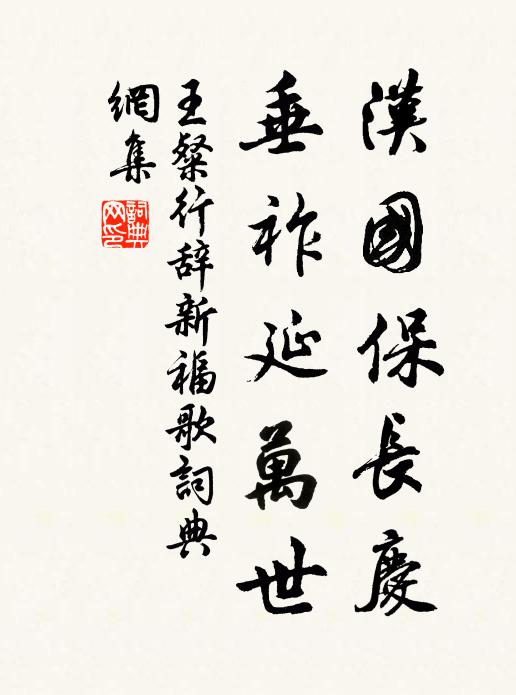 漢國保長慶
垂祚延萬世
王粲行辭新福歌詞典
網集
詞典
网印